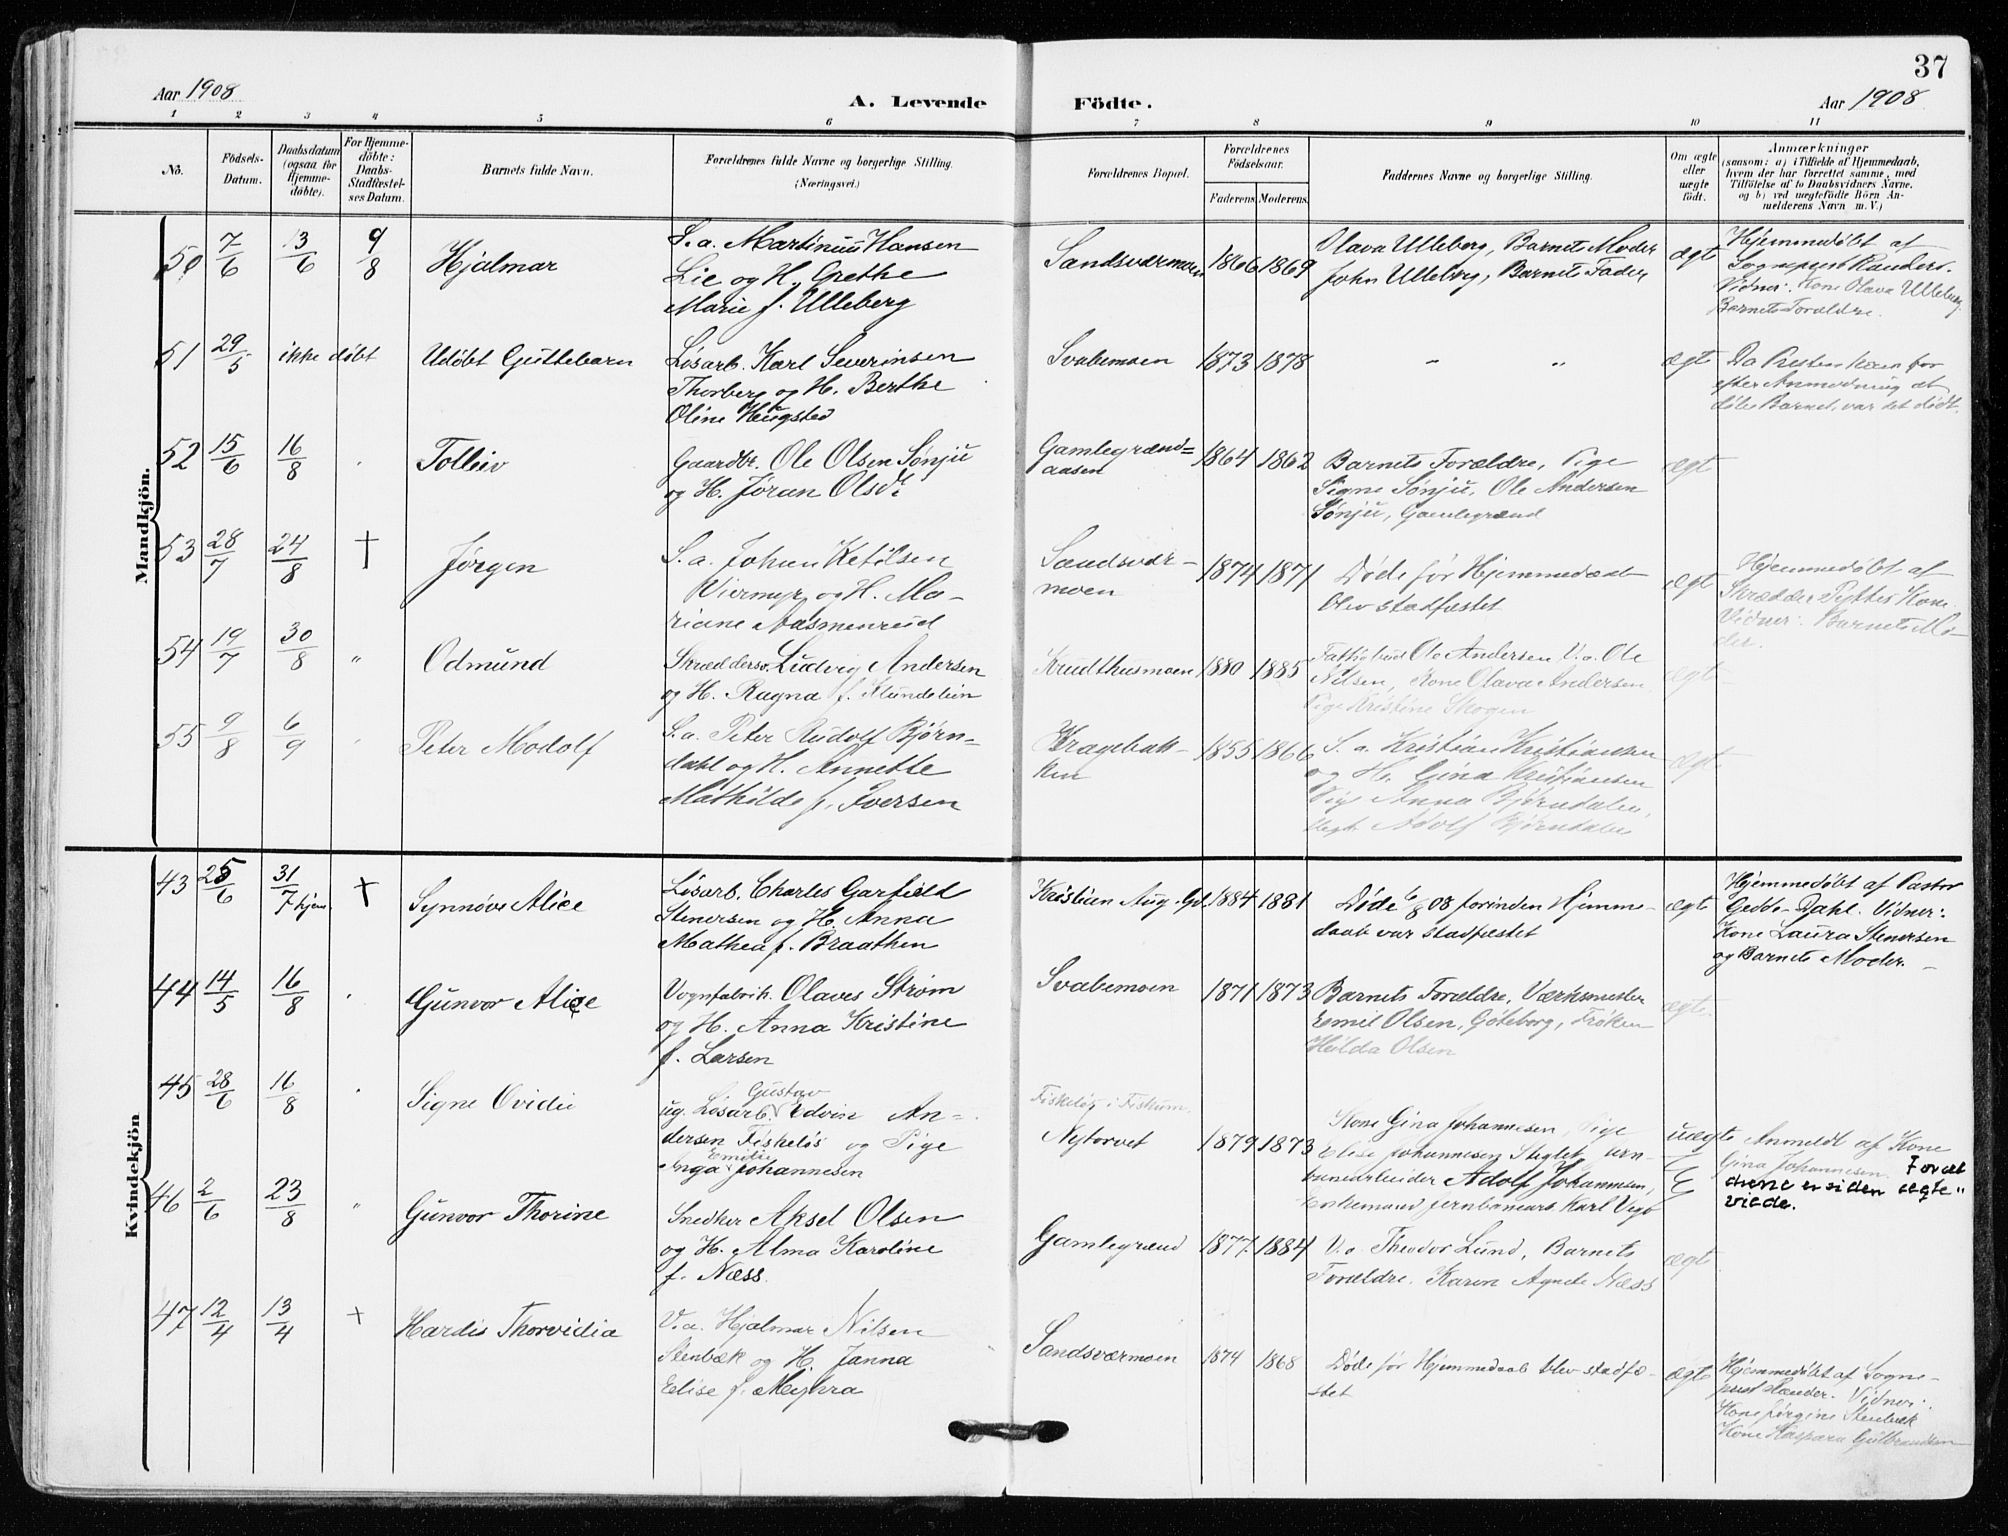 37
Aar 1908
A. Levende Födte.
Aar 1908
1 2 3 4 5 6 7 8 9 10 11
No.
Födsels-Datum.
Daabsdatum (ogsaa for Hjemmedöbte).
For Hjemmedöbte: Daabs-Stadfæstelses Datum.
Barnets fulde Navn.
Forældrenes fulde Navne og borgerlige Stilling.
(Næringsvei.)
Forældrenes Bopæl.
Forældrenes Födselsaar.
Faderens. Moderens.
Faddernes Navne og borgerlige Stilling.
Om ægte eller uægte födt.
Anmærkninger
(saasom: a) i Tilfælde af Hjemmedaab,
hvem der har forrettet samme, med
Tilföielse af to Daabsvidners Navne.
og b) ved uægtefödte Börn Anmelderens Navn m. V.)
Mandkjön.
50 7/6 13/6 9/8 Hjalmar
S. a. Martinius Hansen
Lie og H. Grethe
Marie f. Ulleberg
Sandsværmoen 1866 1869
Olava Ulleberg, Barnets Moder
John Ulleberg, Barnets Fader
ægte
Hjemmedøbt af
Sogneprest Rander.
Vidner: Kone Olava Ulleberg
Barnets Forældre.
51 29/5 ikke døbt Udøbt Guttebarn
Løsarb. Karl Severinsen
Thorberg og H. Berthe
Oline Heugsted
Svabemoen 1873 1878 – „ ægte
Da Presten kom for
efter Anmodning at
døbe Barnet, var det dødt.
52 15/6 16/8 Tolleiv
Gaardbr. Ole Olsen Sønju
og H. Jøran Olsdr.
Gamlegrænd=
aasen
1864 1862
Barnets Forældre, Pige
Signe Sønju, Ole Andersen
Sønju, Gamlegrænd
ægte
53 28/7 24/8 † Jørgen
S. a. Johan Ketilsen
Viermyr og H. Ma-
riane Aasmenrud
Sandsvær-
moen
1874 1871
Døde før Hjemmedaab
blev stadfæstet
ægte
Hjemmedøbt af
Skrædder Kone
Vidner: Barnets Mo-
der.
54 19/7 30/8 „ Odmund
Skræddersv. Ludvig Andersen
og H. Ragna f.
Krudthusmoen 1880 1885
Ole Andersen V. a. Ole
Nilsen, Kone Olava Andersen
Pige Kristine Skogen
ægte
55 9/8 6/9 „ Peter Modolf
S. a. Peter Rudolf Bjørn-
dahl og H. Annette
Mathilde f. Iversen
Kragebak-
ken
1855 1866
S. a. Kristian Kristiansen
og H. Gina Kristiansen
Pige Anna Bjørndalen,
Ungk. Adolf Bjørndalen
ægte
Kvindekjön
43 25/6 31/7 hjem. + Synnøve Alice
Løsarb. Charles Garfield
Stenersen og H. Anna
Mathea f. Braathen
Kristian Aug. Gd. 1884 1881
Døde 6/8 08 forinden Hjemme-
daab var stadfæstet
ægte
Hjemmedøbt af Pastor
Gedde-Dahl. Vidner:
Kone Laura Stenersen
og Barnets Moder. –
44 14/5 16/8 Gunvor Alice
Vognfabrik. Olaves Strøm
og H. Anna Kristine
f. Larsen
Svabemoen 1871 1873
Barnets Forældre, Værksmester
Emil Olsen, Gøteborg, Frøken
Hilda Olsen
ægte.
45 28/6 16/8 Signe Ovidie
Gustav
ug. Løsarb. Edvin An-
dersen Fiskeløs og Pige
Emilie
Inga Johannesen
Fiskeløs i Fiskum.
Nytorvet 1879 1873
Kone Gina Johannesen, Pige
Elise Johannesen Stiglet, Jern-
banearbeider Adolf Johannesen,
jernbanearb. Karl
uægte
Anmeldt af Kone
Gina Johannesen Foræl
drene er siden ægte„
viede.
46 2/6 23/8 „ Gunvor Thorine
Snedker Aksel Olsen
og H. Alma Karoline
f. Næss.
Gamlegrænd 1877 1884
V. a. Theodor Lund, Barnets
Forældre. Karen Agnete Næss
ægte
47 12/4 13/4 + Hardis Thorvidia
V. a. Hjalmar Nilsen
Stenbæk og H. Janna
Elise f. Myhra
Sandsværmoen 1874 1868
Døde før Hjemmedaab blev stadfæ-
stet
ægte
Hjemmedøbt af Sogne-
prest Rander. Vidner:
Kone Jørgine Stenbæk
Kone Kaspara Gulbrandsen